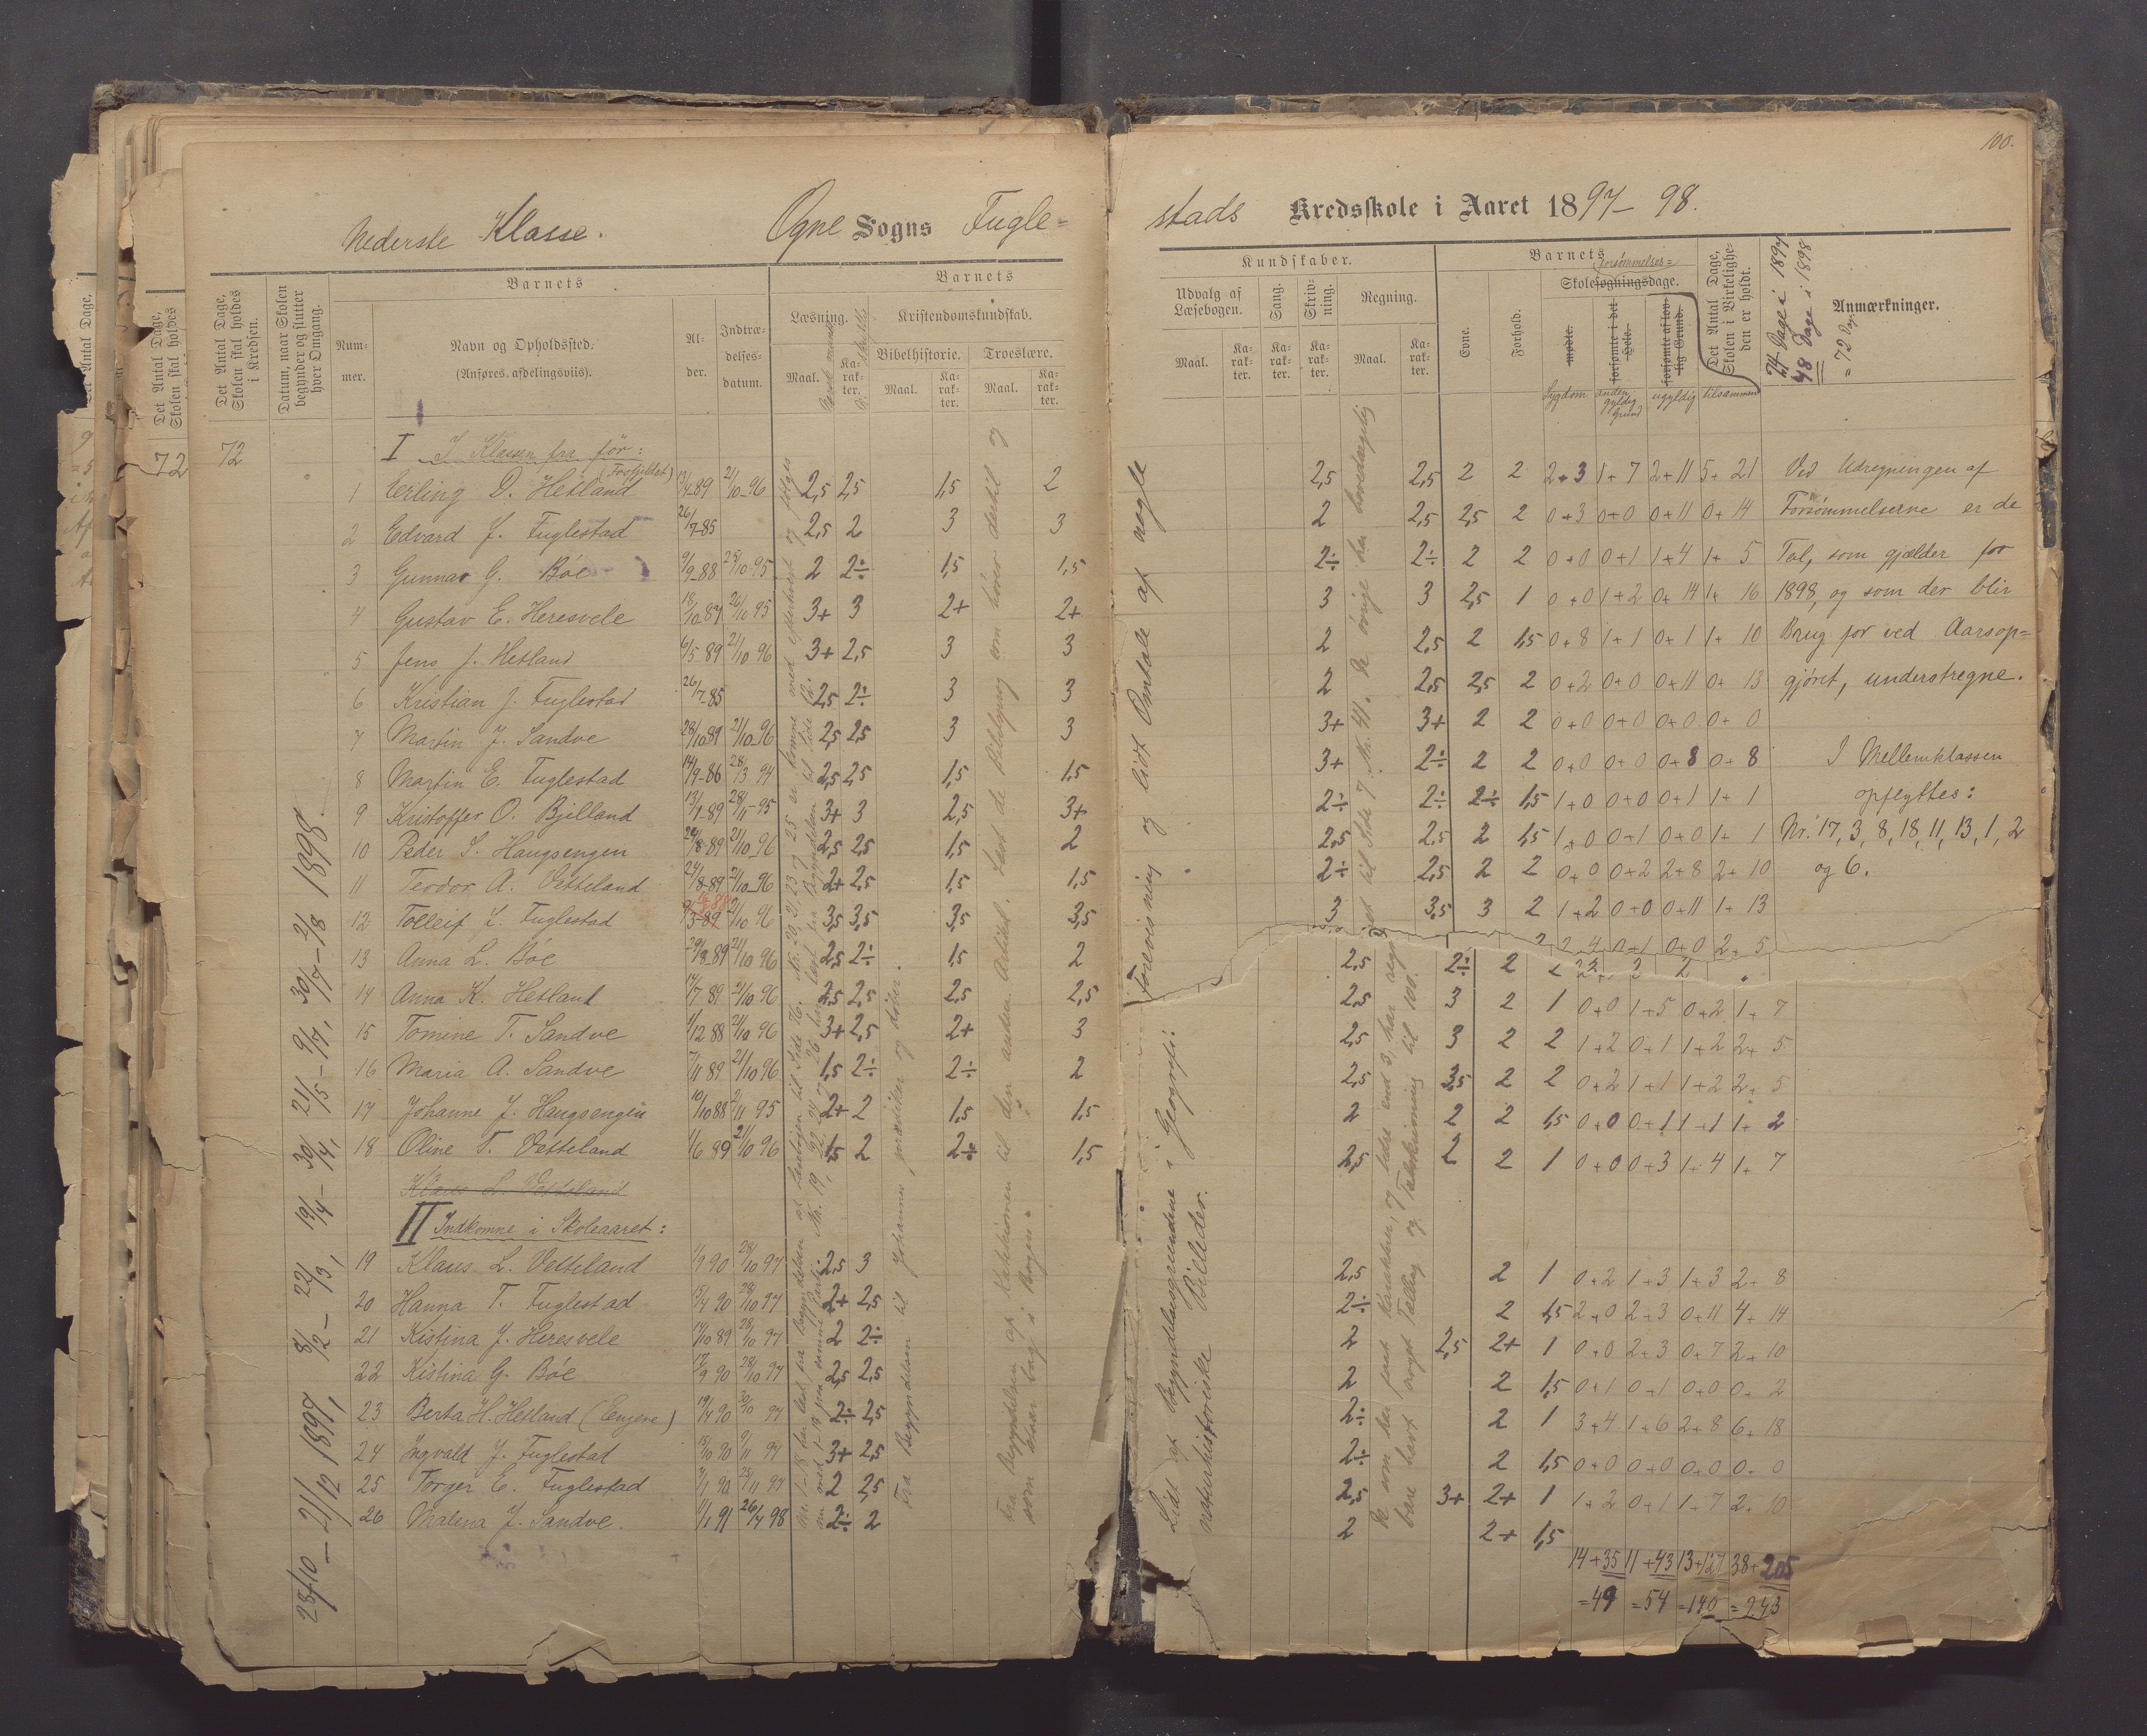 100.
Nederste Klasse. Ogne Sogns Fugle=
stads Kredsskole i Aaret 1897-98.
Det Antal Dage, Skolen skal holdes i Kredsen.
Datum, naar Skolen begynder og slutter hver Omgang.
Barnets
Num-mer.
Navn og Opholdssted.
(Anføres afdelingsviis).
Al-der.
Indtræ-delses-datum.
Barnets
Læsning.
Maal.
Ka-rak-ter.
Kristendomskundskab.
Bibelhistorie.
Maal.
Ka-rak-ter.
Troeslære.
Maal.
Ka-rak-ter.
Kundskaber.
Udvalg af Læsebogen.
Maal.
Ka-rak-ter.
Sang.
Ka-rak-ter.
Skriv-ning.
Ka-rak-ter.
Regning.
Maal.
Ka-rak-ter.
Barnets
Evne.
Forhold.
Forsømmelses=
Skolesøgningsdage.
mødte.
forsømte i det Hele.
forsømte af lov-lig Grund.
Sygdom
anden gyldig Grund
ugyldig
tilsammen
Det Antal Dage, Skolen i Virkelighe-den er holdt.
24 Dage i 1897
48 Dage i 1898
= 72 Dage
Anmærkninger.
72
72
I I Klassen fra før:
1 Erling D. Hetland 13/4-89 21/10-96 2,5 2,5 1,5 2 2,5 2,5 2 2 2+3 1+7 2+11 5+21
2 Edvard J. Fuglestad 26/7-85 2,5 2 3 3 2 2,5 2,5 2 0+3 0+0 0+11 0+14
3 Gunnar G. Bóe 9/9-88 25/10-95 2 2÷ 1,5 1,5 2÷ 2÷ 2 2 0+0 0+1 1+4 1+5
4 Gustav E. Heresvele 18/10 87 26/10 95 3+ 3 2+ 2+ 3 3 2,5 1 0+0 1+2 0+14 1+16
5 Jens J. Hetland 6/5 89 21/10 96 3+ 2,5 3 3 2 2,5 2 1,5 0+8 1+1 0+1 1+10
6 Kristian J. Fuglestad 26/7-85 2,5 2÷ 3 3 2 2,5 2,5 2 0+2 0+0 0+11 0+13
7 Martin J. Sandve 28/10 89 21/10-96 2,5 2,5 3 3 3+ 3+ 2 2 0+0 0+0 0+0 0+0
8 Martin E. Fuglestad 14/9-86 28/3 94 2,5 2,5 1,5 1,5 3+ 2÷ 2 2 0+0 0+0 0+8 0+8
9 Kristoffer O. Bjelland 13/1-89 28/1-95 3+ 3 2,5 3+ 2÷ 2÷ 2÷ 1,5 1+0 0+0 0+1 1+1
10 Peder S. Haugsengen 24/8-89 21/10-96 2,5 2,5 1,5 2 2,5 2,5 2 1,5 1+0 0+1 0+0 1+1
11 Teodor A. Vetteland 24/8-89 21/10-96 2+ 2,5 1,5 1,5 2÷ 2,5 2 2 0+0 0+2 2+8 2+10
12 Tolleif J. Fuglestad 9/3-89 21/10 96 3,5 3,5 3,5 3,5 3 3,5 3 2 1+2 0+0 0+11 1+13
13 Anna L. Bóe 29/8-89 21/10 96 2,5 2÷ 1,5 2 2,5 2÷ 2 2 2+4 0+1 0+0 2+5
14 Anna K. Hetland 17/7 89 21/10 96 2,5 2,5 2,5 2,5 2,5 3 2 1 0+0 1+5 0+2 1+7
15 Tomine T. Sandve 1/12 88 21/10 96 3+ 2,5 2+ 3 2,5 3 2 2 1+2 0+1 1+2 2+5
16 Maria A. Sandve 7/11 89 21/10 96 1,5 2÷ 2÷ 2 2,5 3,5 2 2 0+2 1+1 1+2 2+5
17 Johanne J. Haugsengen 10/10 88 2/11 95 2+ 2 1,5 1,5 2 2 2 1,5 0+0 0+1 1+1 1+2
18 Oline T. Vetteland 1/6 89 21/10 96 1,5 2 2÷ 1,5 2,5 2 2 1 0+0 0+3 1+4 1+7
Klaus L. Vetteland
II Indkomne i Skoleaaret:
19 Klaus L. Vetteland 1/9 90 28/10 97 2,5 3 2,5 2 1 0+2 1+3 1+3 2+8
20 Hanna T. Fuglestad 15/4 90 28/10 97 2+ 2,5 2÷ 2 1,5 2+0 2+3 0+11 4+14
21 Kistina J. Heresvele 14/10 89 28/10 97 2 2÷ 2 2,5 2+ 1 0+0 2+3 0+7 2+10
22 Kistina G. Bóe 17/9 90 28/10 97 2,5 2,5 2 2 1,5 0+1 0+1 0+0 0+2
23 Berta H. Hetland (Eugene) 19/4 90 30/10 97 2÷ 2,5 2÷ 2 1 3+4 1+6 2+8 6+18
24 Ingvald J. Fuglestad 18/10 90 9/11 97 3+ 2,5 2÷ 2 1,5 0+0 0+0 0+0 0+0
25 Torger E. Fuglestad 3/1 90 25/11 97 2 2,5 2,5 3+ 2+ 1 1+2 0+1 1+7 2+10
26 Malena J. Sandve. 1/1 91 26/4 98 2÷ 2 2 2+ 1,5
14+35 11+43 13+127 38+205
=49 =54 =140 =243
28/10 - 21/12 1897, 8/2 - 22/3, 19/4 - 30/4, 21/5 - 9/7, 30/7 - 2/8 1898.
Fra Begyndelsen til Johannes, prædiker og døber.
Fra Begyndelsen af Katekismen til den anden Artikel. Samt de Bibelsprog som hører dertil og som staar bag i Bogen.
Lidt af Begyndelsesgrundene i Geografi: Forevisning og lidt Omtale af nogle naturhistoriske Billeder.
De som har faaet Karakter, og bedre end 3, har regnet til Side 7, Nr. 41. De øvrige har hovedsagelig bare havt øvet Tællelig og Talskrivning til 100.
Ved Udregningen af
Forsømmelserne er de
Tal, som gjælder for
1898, og som der blir
Brug for ved Aarsop=
gjøret, understregne.
I Mellemklassen
opflyttes:
Nr. 17, 3, 8, 18, 11, 13, 1, 2
og 6.